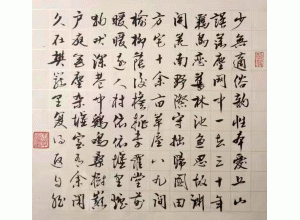 少無適俗韻性本愛丘山
誤落塵網中一去三十年
羈鳥戀舊林池魚思故淵
開荒南野際守拙歸園田
方宅十余畝草屋八九間
榆柳蔭後檐桃李羅堂前
曖曖遠人村依依墟里煙
狗吠深巷中雞鳴桑樹巔
戶庭無塵雜虛室有余閑
久在樊籠里復得返自然